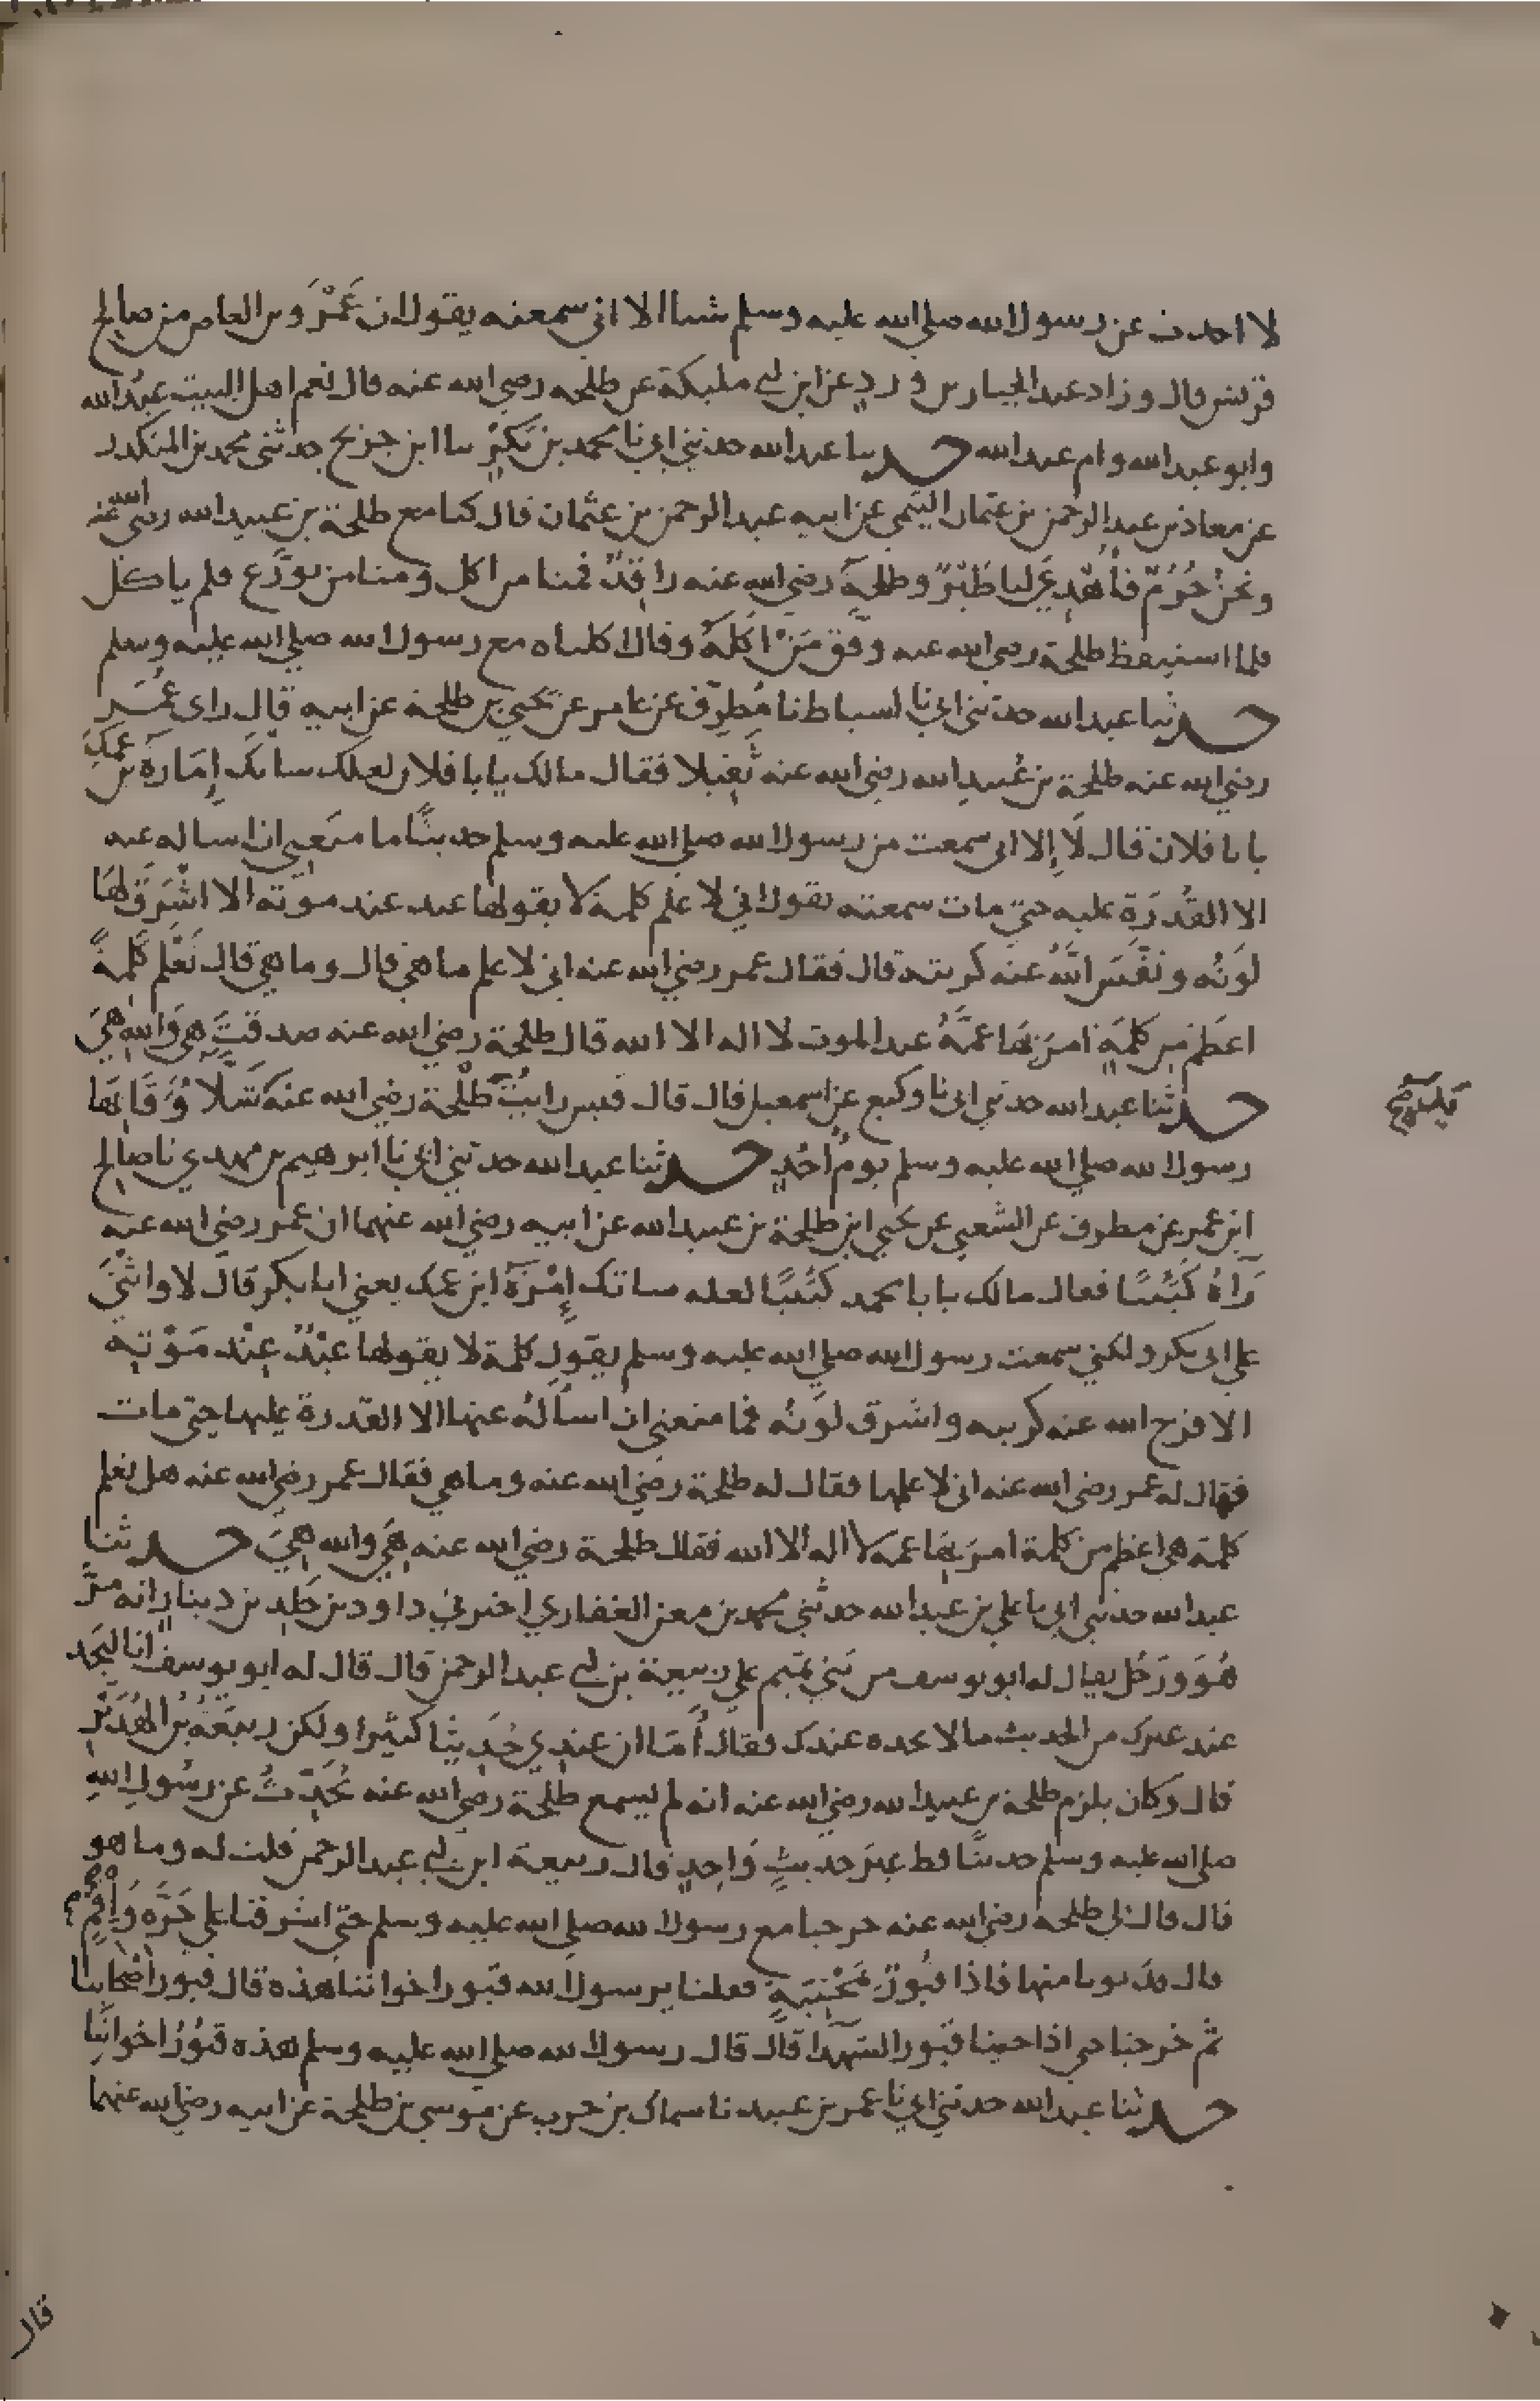 لا احدث عن رسول الله صلى الله عليه وسلم شيا الا اني سمعته يقول ان عَمْرَو بن العاص من صالح
قريش قال وزاد عبد الجبار بن ورد عن ابن ابي مليكة عن طلحه رضي الله عنه قال نعم اهل البيت عبد الله
وابو عبد الله وام عبد الله حدثنا عبد الله حدثني ابي نا محمد بن بكر ثنا ابن جريج حدثني محمد بن المنكدر
عن معاذ بن عبد الرحمن بن عثمان التيمي عن ابيه عبد الرحمن بن عثمان قال كنا مع طلحة بن عبيد الله رضي الله عنه
ونحنُ حُرُمٌ فأُهْدِيَ لنا طَيْرٌ وطلحةُ رضي الله عنه راقدٌ فمنا من اكل ومنا من تورَّع فلم ياكل
فلما استيقظ طلحة رضي الله عنه وفّق مَنْ اكلَهُ وقال اكلناه مع رسول الله صلى الله عليه وسلم
حدثنا عبد الله حدثني ابي نا اسباط نا مُطرِّف عن عامر عن يحيى بن طلحة عن ابيه قال راى عُمَر
رضي الله عنه طلحة بن عُبيد الله رضي الله عنه ثقيلا فقال مالك يابا فلان لعلك سأتك إمَارَة بن عمك
يابا فلان قال لا إلا اني سمعت من رسول الله صلى الله عليه وسلم حديثًا ما منعني ان اساله عنه
الا القُدرَة عليه حتى مات سمعته يقول اني لاعلم كلمة لا يقولها عبد عند موته الا اشرَق لهَا
لَونُه ونَفَّسَ اللهُ عنه كربته قال فقال عمر رضي الله عنه اني لاعلم ما هي قال وما هي قال تَعْلم كَلمةً
اعظم من كلمةٍ امرَ بها عمَّهُ عند الموت لا اله الا الله قال طلحة رضي الله عنه صدقتَ هيَ والله هيَ
حدثنا عبد الله حدثني ابي نا وكيع عن اسمعيل قال قال قيس رايتُ طلْحة رضي الله عنه شَلَّاءُ وَقَا بهَا
رسول الله صلى الله عليه وسلم يومُ اُحُدٍ حدثنا عبد الله حدثني ابي نا ابرهيم بن مهدي نا صالح
ابن عمر عن مطرف عن الشعبي عن يحيى ابن طلحة بن عبيد الله عن ابيه رضي الله عنهما ان عمر رضي الله عنه
رَآهُ كَئيبًا فقال مالك يابا محمد كئيبًا لعله ساتك إِمْرَةُ ابن عمك يعني ابا بكر قال لا واثنَى
على ابي بكر ولكني سمعت رسول الله صلى الله عليه وسلم يقول كلمة لا يقولها عبْدٌ عِنْد مَوْتِه
الا فرج الله عنه كربته واشرق لونُه فما منعني ان اسألهُ عنها الا القدرة عليها حتى مات
فقال له عمر رضي الله عنه اني لاعلمها فقال له طلحة رضي الله عنه وما هي فقال عمر رضي الله عنه هل تعلم
كلمة هي اعظم من كلمة امرَ بها عمه لا اله الا الله فقال طلحة رضي الله عنه هيَ والله هيَ حدثنا
عبد الله حدثني ابي نا علي بن عبد الله حدثني محمد بن معن الغفاري اخبرني داود بن خلدٍ بن دينار انه مرَّ
هُوَ ورَجُل يقال له ابو يوسف من بَني تميم على ربيعة بن ابي عبد الرحمن قال قال له ابو يوسف انا لنَجد
عند غيرك من الحديث ما لا نجده عندك فقال أمَا ان عندي حَدِيثا كثيرا ولكن ربيعَةُ بنُ الهُدَيْرِ
قال وكان يلزم طلحة بن عبيد الله رضي الله عنه انه لم يسمع طلحة رضي الله عنه يُحَدِّثُ عن رسُولِ اللهِ
صلى الله عليه وسلم حديثًا قط غيرَ حديثٍ وَاحِدٍ قال ربيعة ابن ابي عبد الرحمن قلت له وما هو
قال قال لي طلحة رضي الله عنه خرجنا مع رسول الله صلى الله عليه وسلم حتى اشرفنا على حَرَّة وَاقِمٍ
قال فدنونا منها فاذا قبُورٌ بمَحْنِيَةٍ فقلنا يرسول الله قبور اخواننا هذه قال قبور اصْحابنا
ثم خرجنا حتى اذا جينا قبور الشهدا قال قال رسول الله صلى الله عليه وسلم هذه قبُورُ اخوانِنا
حدثنا عبد الله حدثني ابي نا عمر بن عبيد نا سماك بن حرب عن موسى بن طلحة عن ابيه رضي الله عنهما
قال